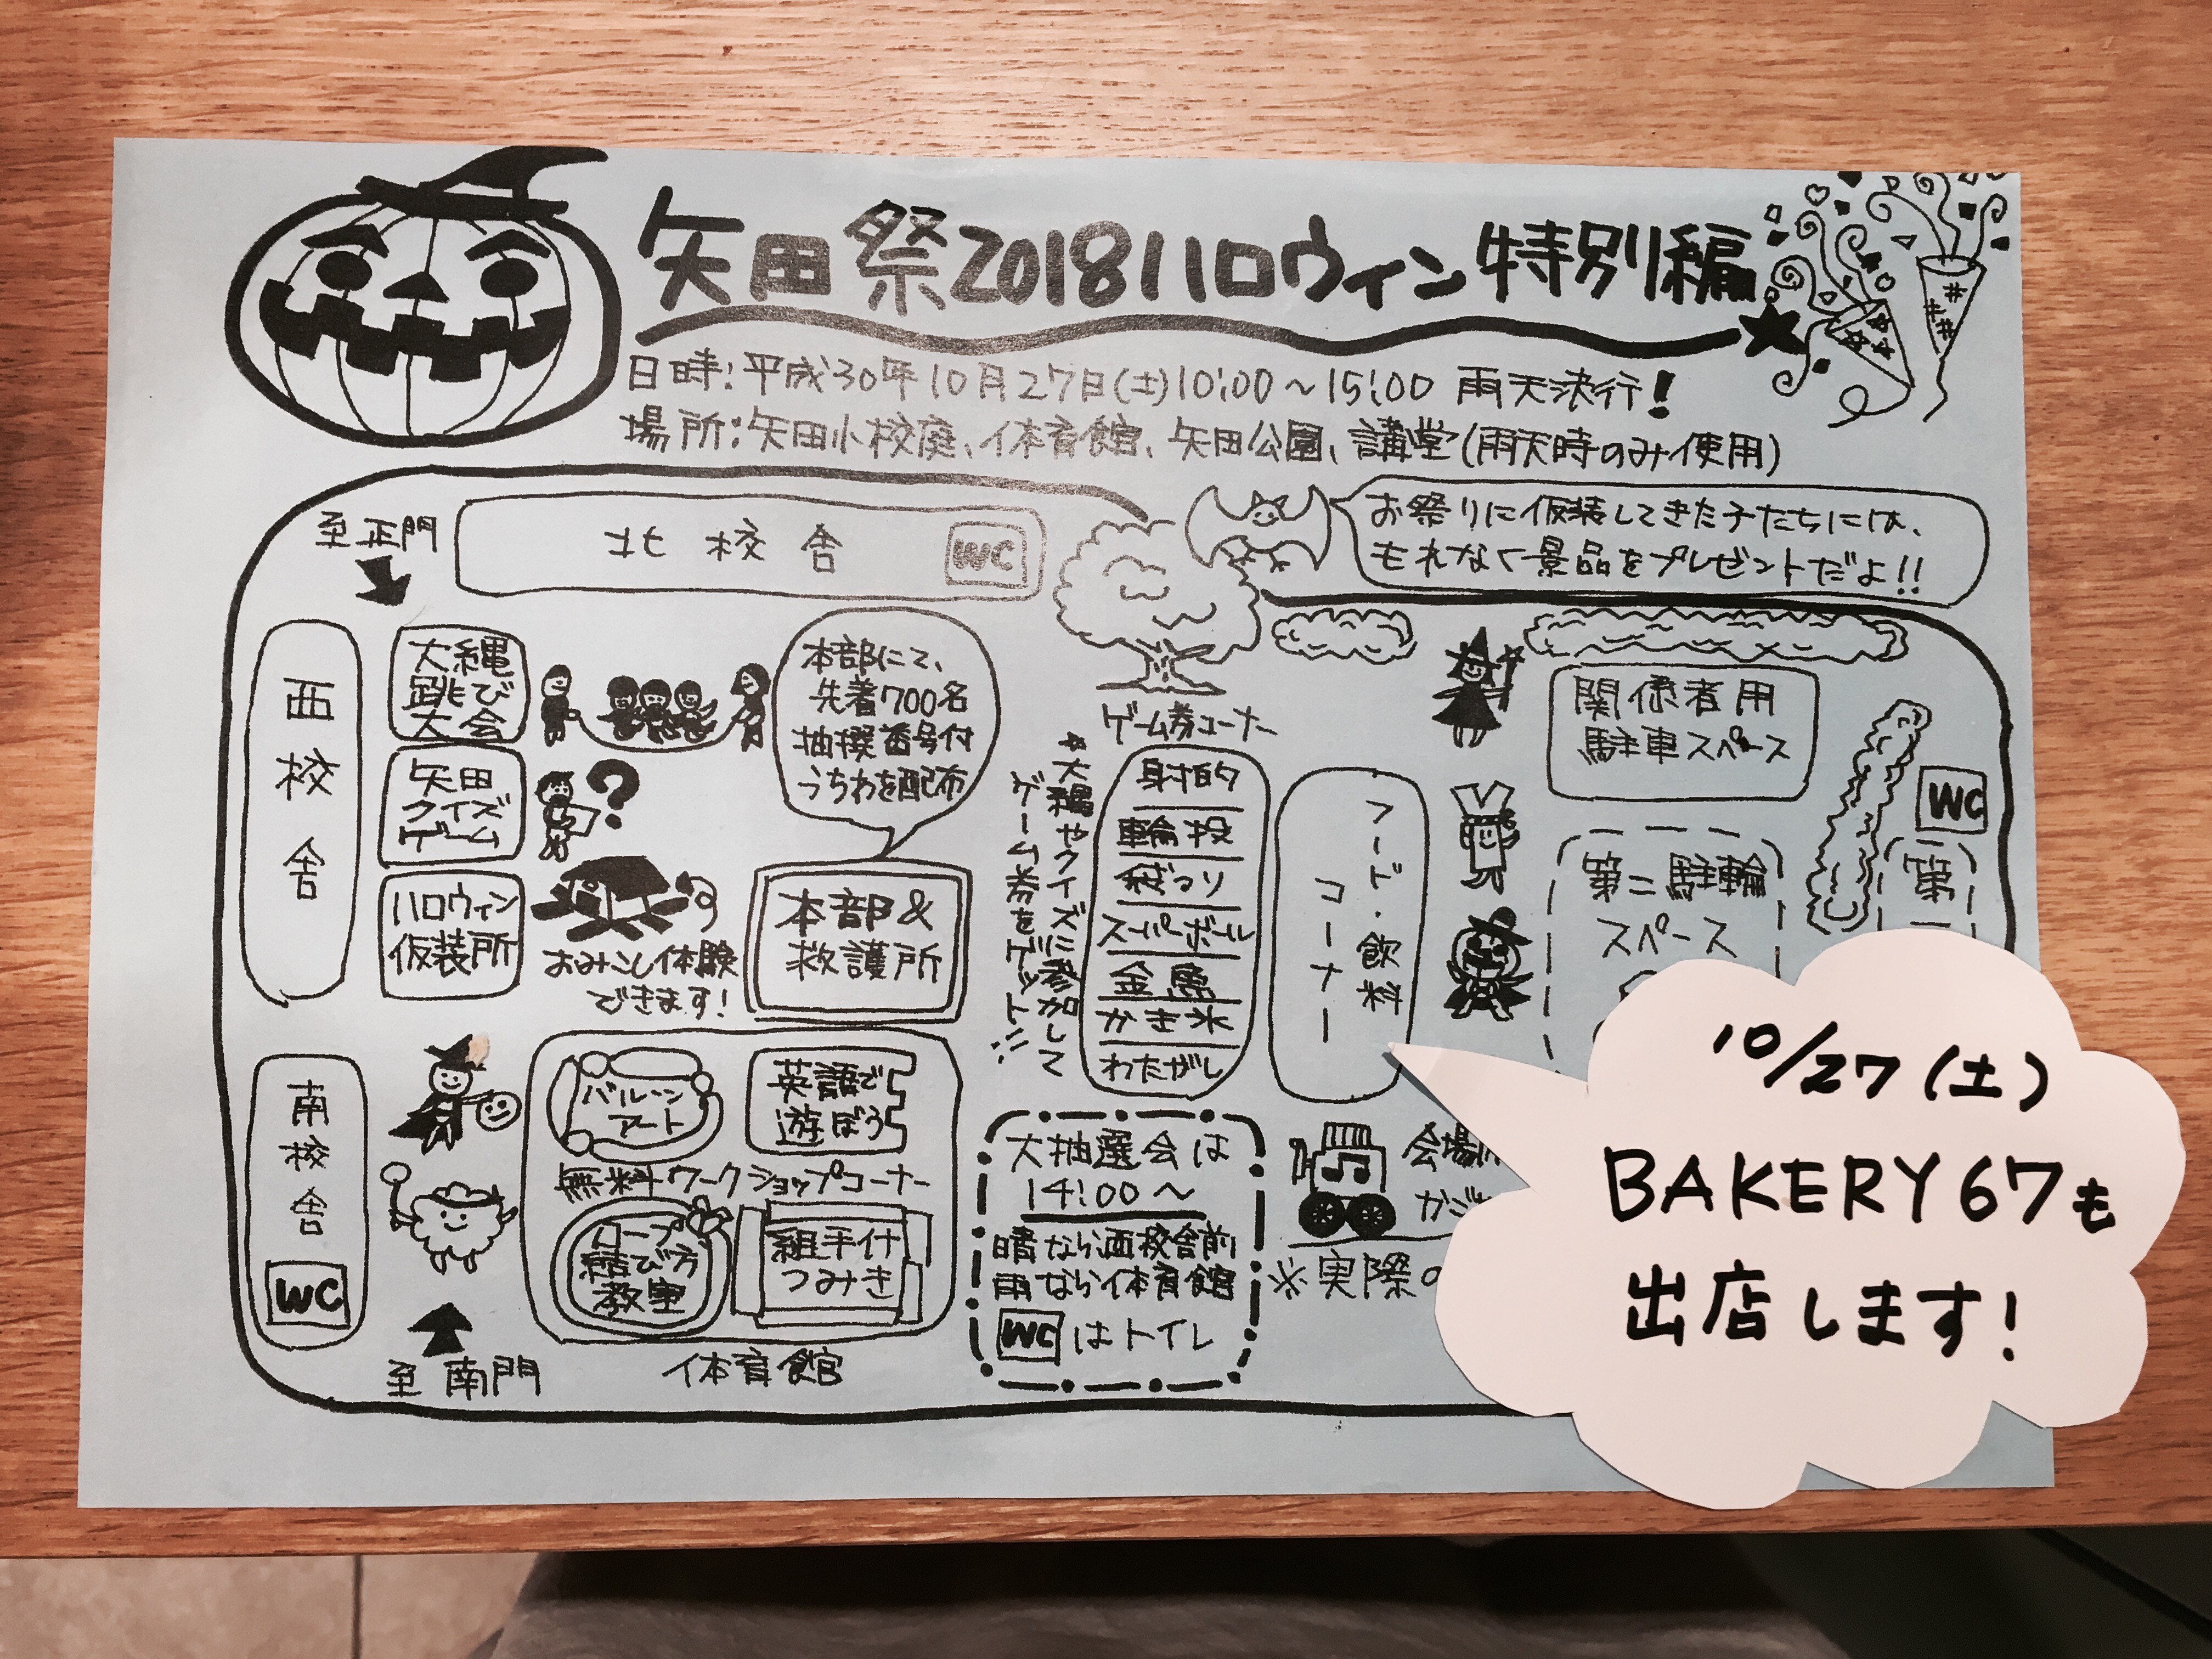 矢田祭2018ハロウィン特別編
日時:平成30年10月27日(土)10:00～15:00 雨天決行!
場所:矢田小校庭、体育館、矢田公園、講堂(雨天時のみ使用)
お祭りに仮装してきた子たちには、
もれなく景品をプレゼントだよ!!
至正門
北校舎
WC
西校舎
大縄
跳び
大会
矢田
クイズ
ゲーム
ハロウィン
仮装所
おみこし体験
できます!
本部にて、
先着700名
抽撰番号付
うちわを配布
本部&
救護所
ゲーム券コーナー
★大縄やクイズに参加して
ゲーム券をゲット!!
射的
輪投
スーパーボール
金魚
かき氷
わたがし
フード・飲料
コーナー
関係者用
駐車スペース
WC
第二駐輪
スペース
第一
南校舎
WC
至南門
バルーン
アート
英語で
遊ぼう
無料ワークショップコーナー
ロープ
結び方
教室
組手什
つみき
体育館
大抽選会は
14:00～
晴なら西校舎前
雨なら体育館
WCはトイレ
会場
※実際の
10/27(土)
BAKERY67も
出店します!